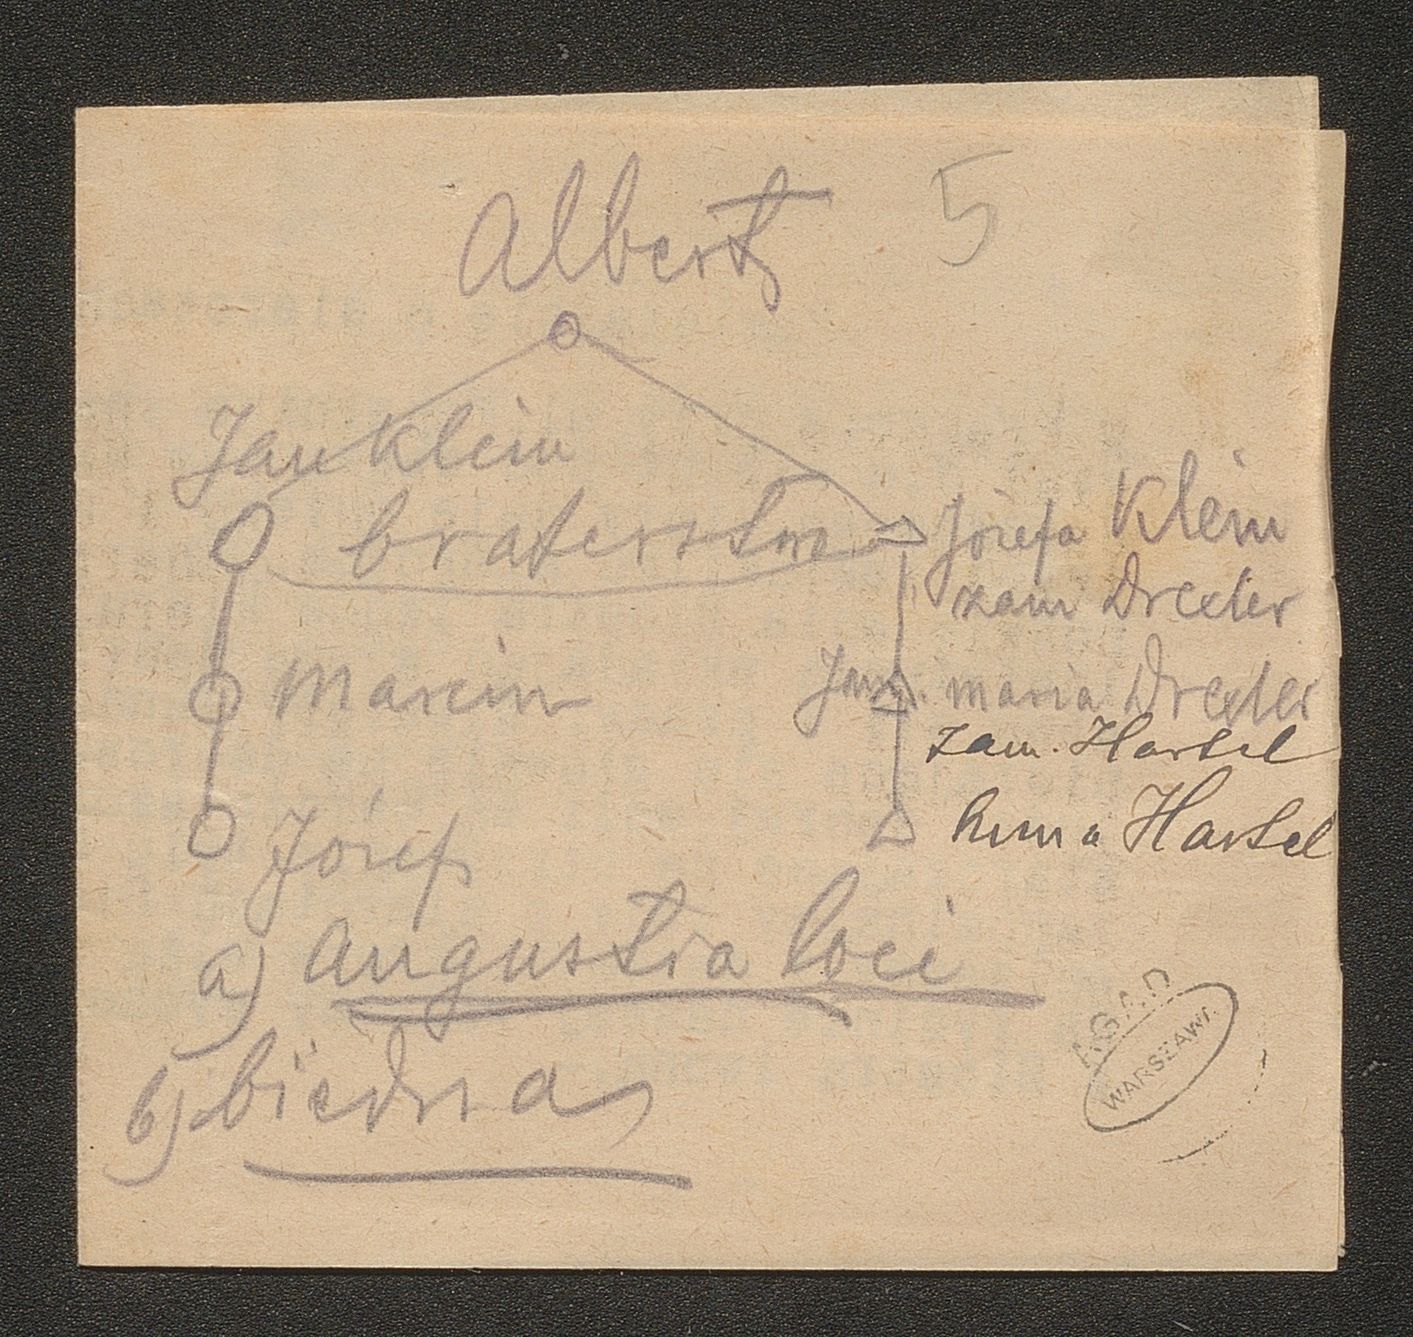 Albert
5
Jan Klein
braterstwo
Józefa Klein
zam Drexler
Marcin
maria Drexler
zam. Hartel
Anna Hartel
Józef
a) angustia loci
b) biedna
AGAD
WARSZAWA